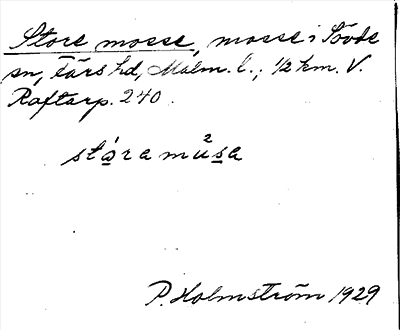 Store mosse, mosse i Sövde
sn, Färs hd, Malm. l.; 1/2 km. V.
Raftarp. 240.
stóra mǔsa
P. Holmström 1929